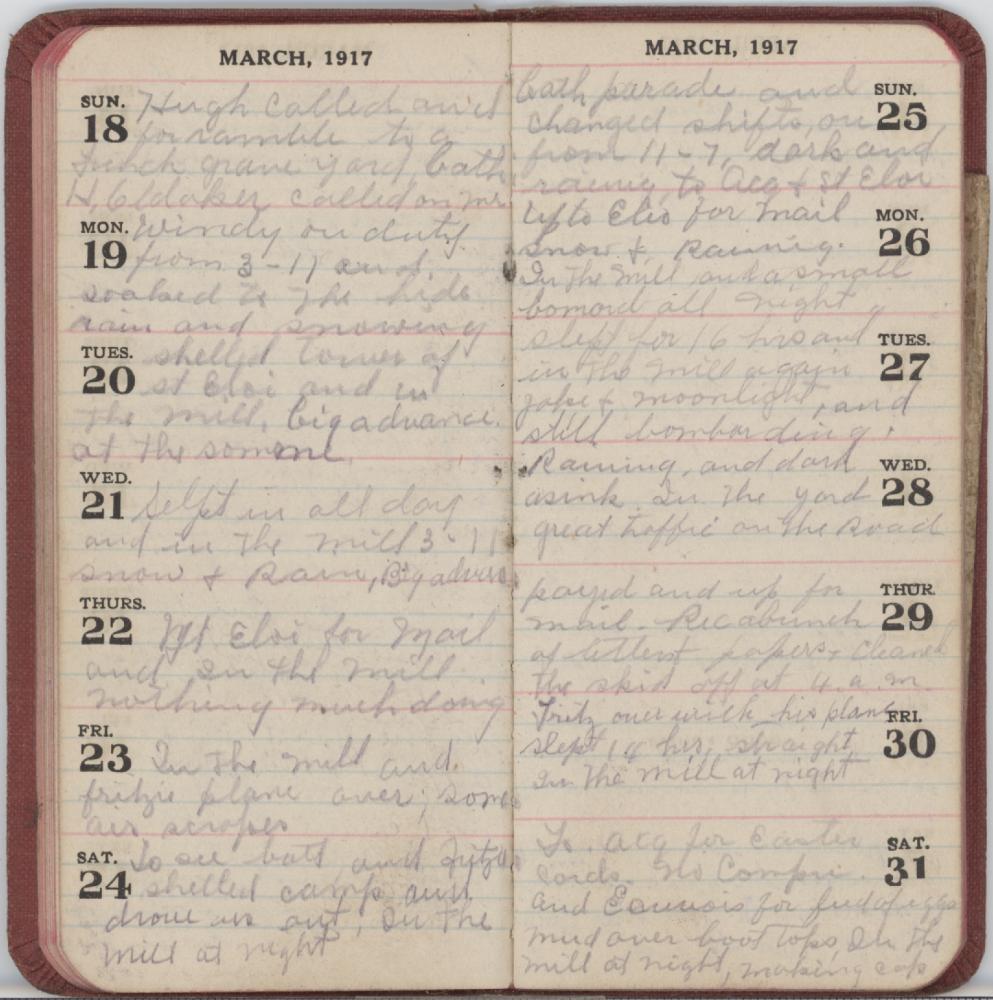 MARCH, 1917
SUN. 18 Hugh called and
for ramble to a
French grave yard bath
H. Oldaker called on me
MON. 19 Windy on duty
from 3-11 and
soaked to The hide
rain and snowing
TUES. 20 shelled tower of
st Eloi and in
The Mill, big advance
at The somme
WED. 21 Selpt in all day
and in The Mill 3-11
snow & Rain, Big advance
THURS. 22 Mt Eloi for Mail
and In The Mill
Nothing much doing
FRI. 23 In The Mill and
fritzie plane over, some
air scraper
SAT. 24 To see batt and Fritz
shelled camp and
drove us out, In The
Mill at night
MARCH, 1917
SUN. 25 bath parade and
changed shifts, on
from 11-7, dark and
rainig to Acq & St Eloi
MON. 26 Up to Eloi for Mail
snow & Raining.
In The Mill and a small
bomard all night
TUES. 27 slept for 16 hrs and
in The Mill again
jake & moonlight, and
still bombarding.
WED. 28 Raining, and dark
asink In The yard
great traffic on The Road
THUR. 29 payed and up for
mail. Rec a bunch
of letters & papers, Cleaned
The skid off at 4. a.m.
FRI. 30 Fritz over with his plane
slept 14 hrs, straight
In The Mill at night
SAT. 31 To. Acq for Easter
cards. No Compri.
and for feed of eggs
Mud over boot Tops, In The
Mill at night, making